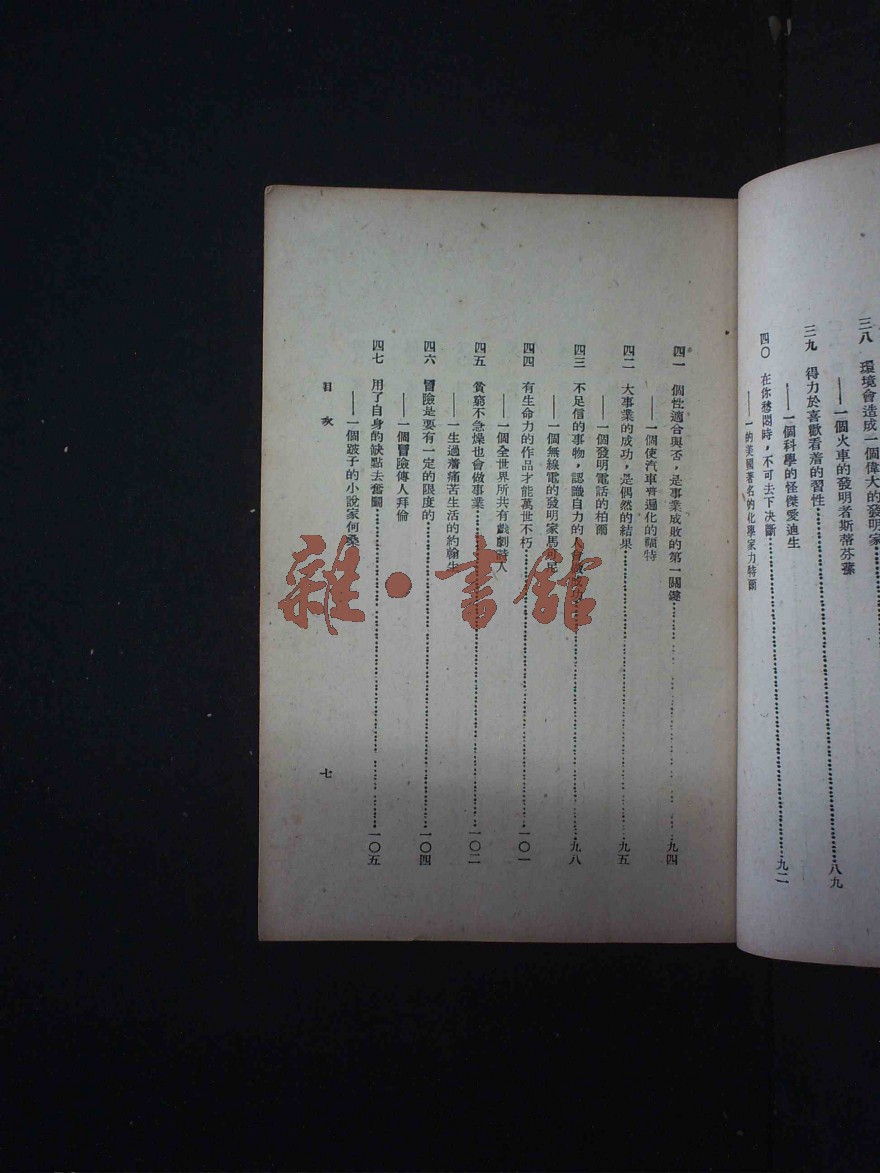 三八　環境會造成一個偉大的發明家
——一個火車的發明者斯蒂芬蓀
三九　得力於喜歡看書的習性……八九
——一個科學的怪傑愛迪生
四〇　在你愁悶時，不可去下決斷……九二
——一的美國著名的化學家力特爾
四一　個性適合與否，是事業成敗的第一關鍵……九四
——一個使汽車普遍化的福特
四二　大事業的成功，是偶然的結果……九五
——一個發明電話的柏爾
四三　不足信的事物，認識自力的人……九八
——一個無線電的發明家馬可尼
四四　有生命力的作品才能萬世不朽……一〇一
——一個全世界所共有戲劇詩人
四五　貧窮不急燥也會做事業……一〇二
——一生過着痛苦生活的約翰生
四六　冒險是要有一定的限度的……一〇四
——一個冒險傳人拜倫
四七　用了自身的缺點去奮鬭……一〇五
——一個跛子的小說家何桑
目次
七
雜·書館